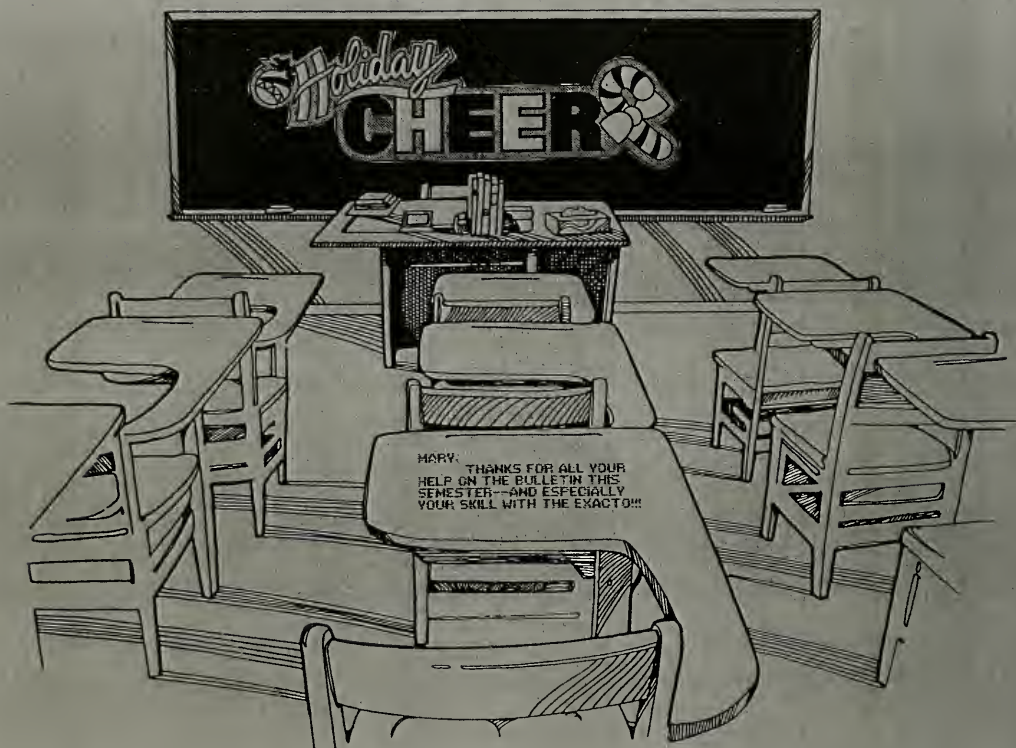 Holiday
CHEER
MARY,
THANKS FOR ALL YOUR
HELP ON THE BULLETIN THIS
SEMESTER--AND ESPECIALLY
YOUR SKILL WITH THE EXACTO!!!